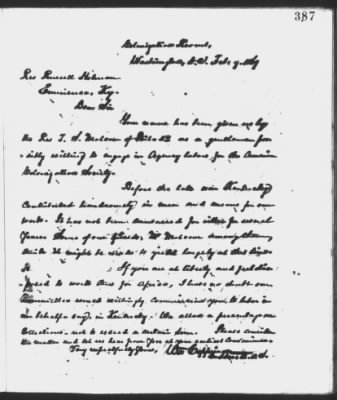 387
Colonization Rooms,
Washington, D.C. Feb. 9, 1869
Rev Russell Holman
Eminence, Ky.
Dear Sir
Your name has been given us by
the Rev T. S. Malcom of Phila as a gentleman pos-
sibly willing to engage in Agency labors for the American
Colonization Society.
Before the late war Kentucky
Contributed handsomely in men and means for our
work. It has not been canvassed for it for several
years. Some of our friends, Mr Malcom among them,
think it might be made to yield largely at this time.
If you are at liberty and feel disp-
posed to work this for Africa, I have no doubt our
Committee would willingly commission you to labor in
its behalf say in Kentucky. We allow a percentage on
Collections not to exceed a certain sum. Please consider
the matter and let us hear from you at your earliest convenience
Very respectfully yours, Wm Coppinger